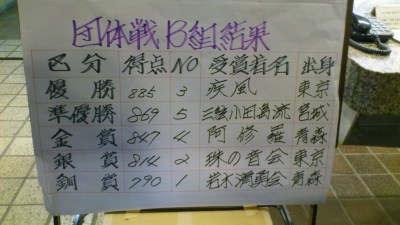 団体戦B組結果
区分 得点 NO 受賞者名 出身
優勝 885 3 疾風 東京
準優勝 869 5 三絃小田島流 宮城
金賞 847 4 阿修羅 青森
銀賞 814 2 珠の音会 東京
銅賞 790 1 岩木演奏会 青森